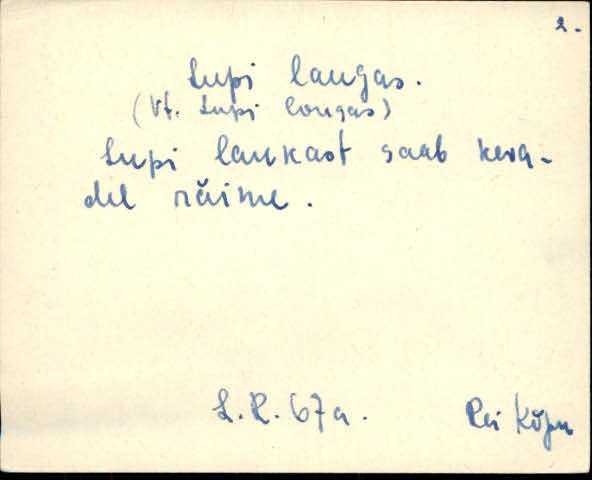 2.
Lupi laugas.
(Vt. Lupi lougas)
Lupi laukast saab keva-
del räime.
L.R. 67a. Rei Kõpu